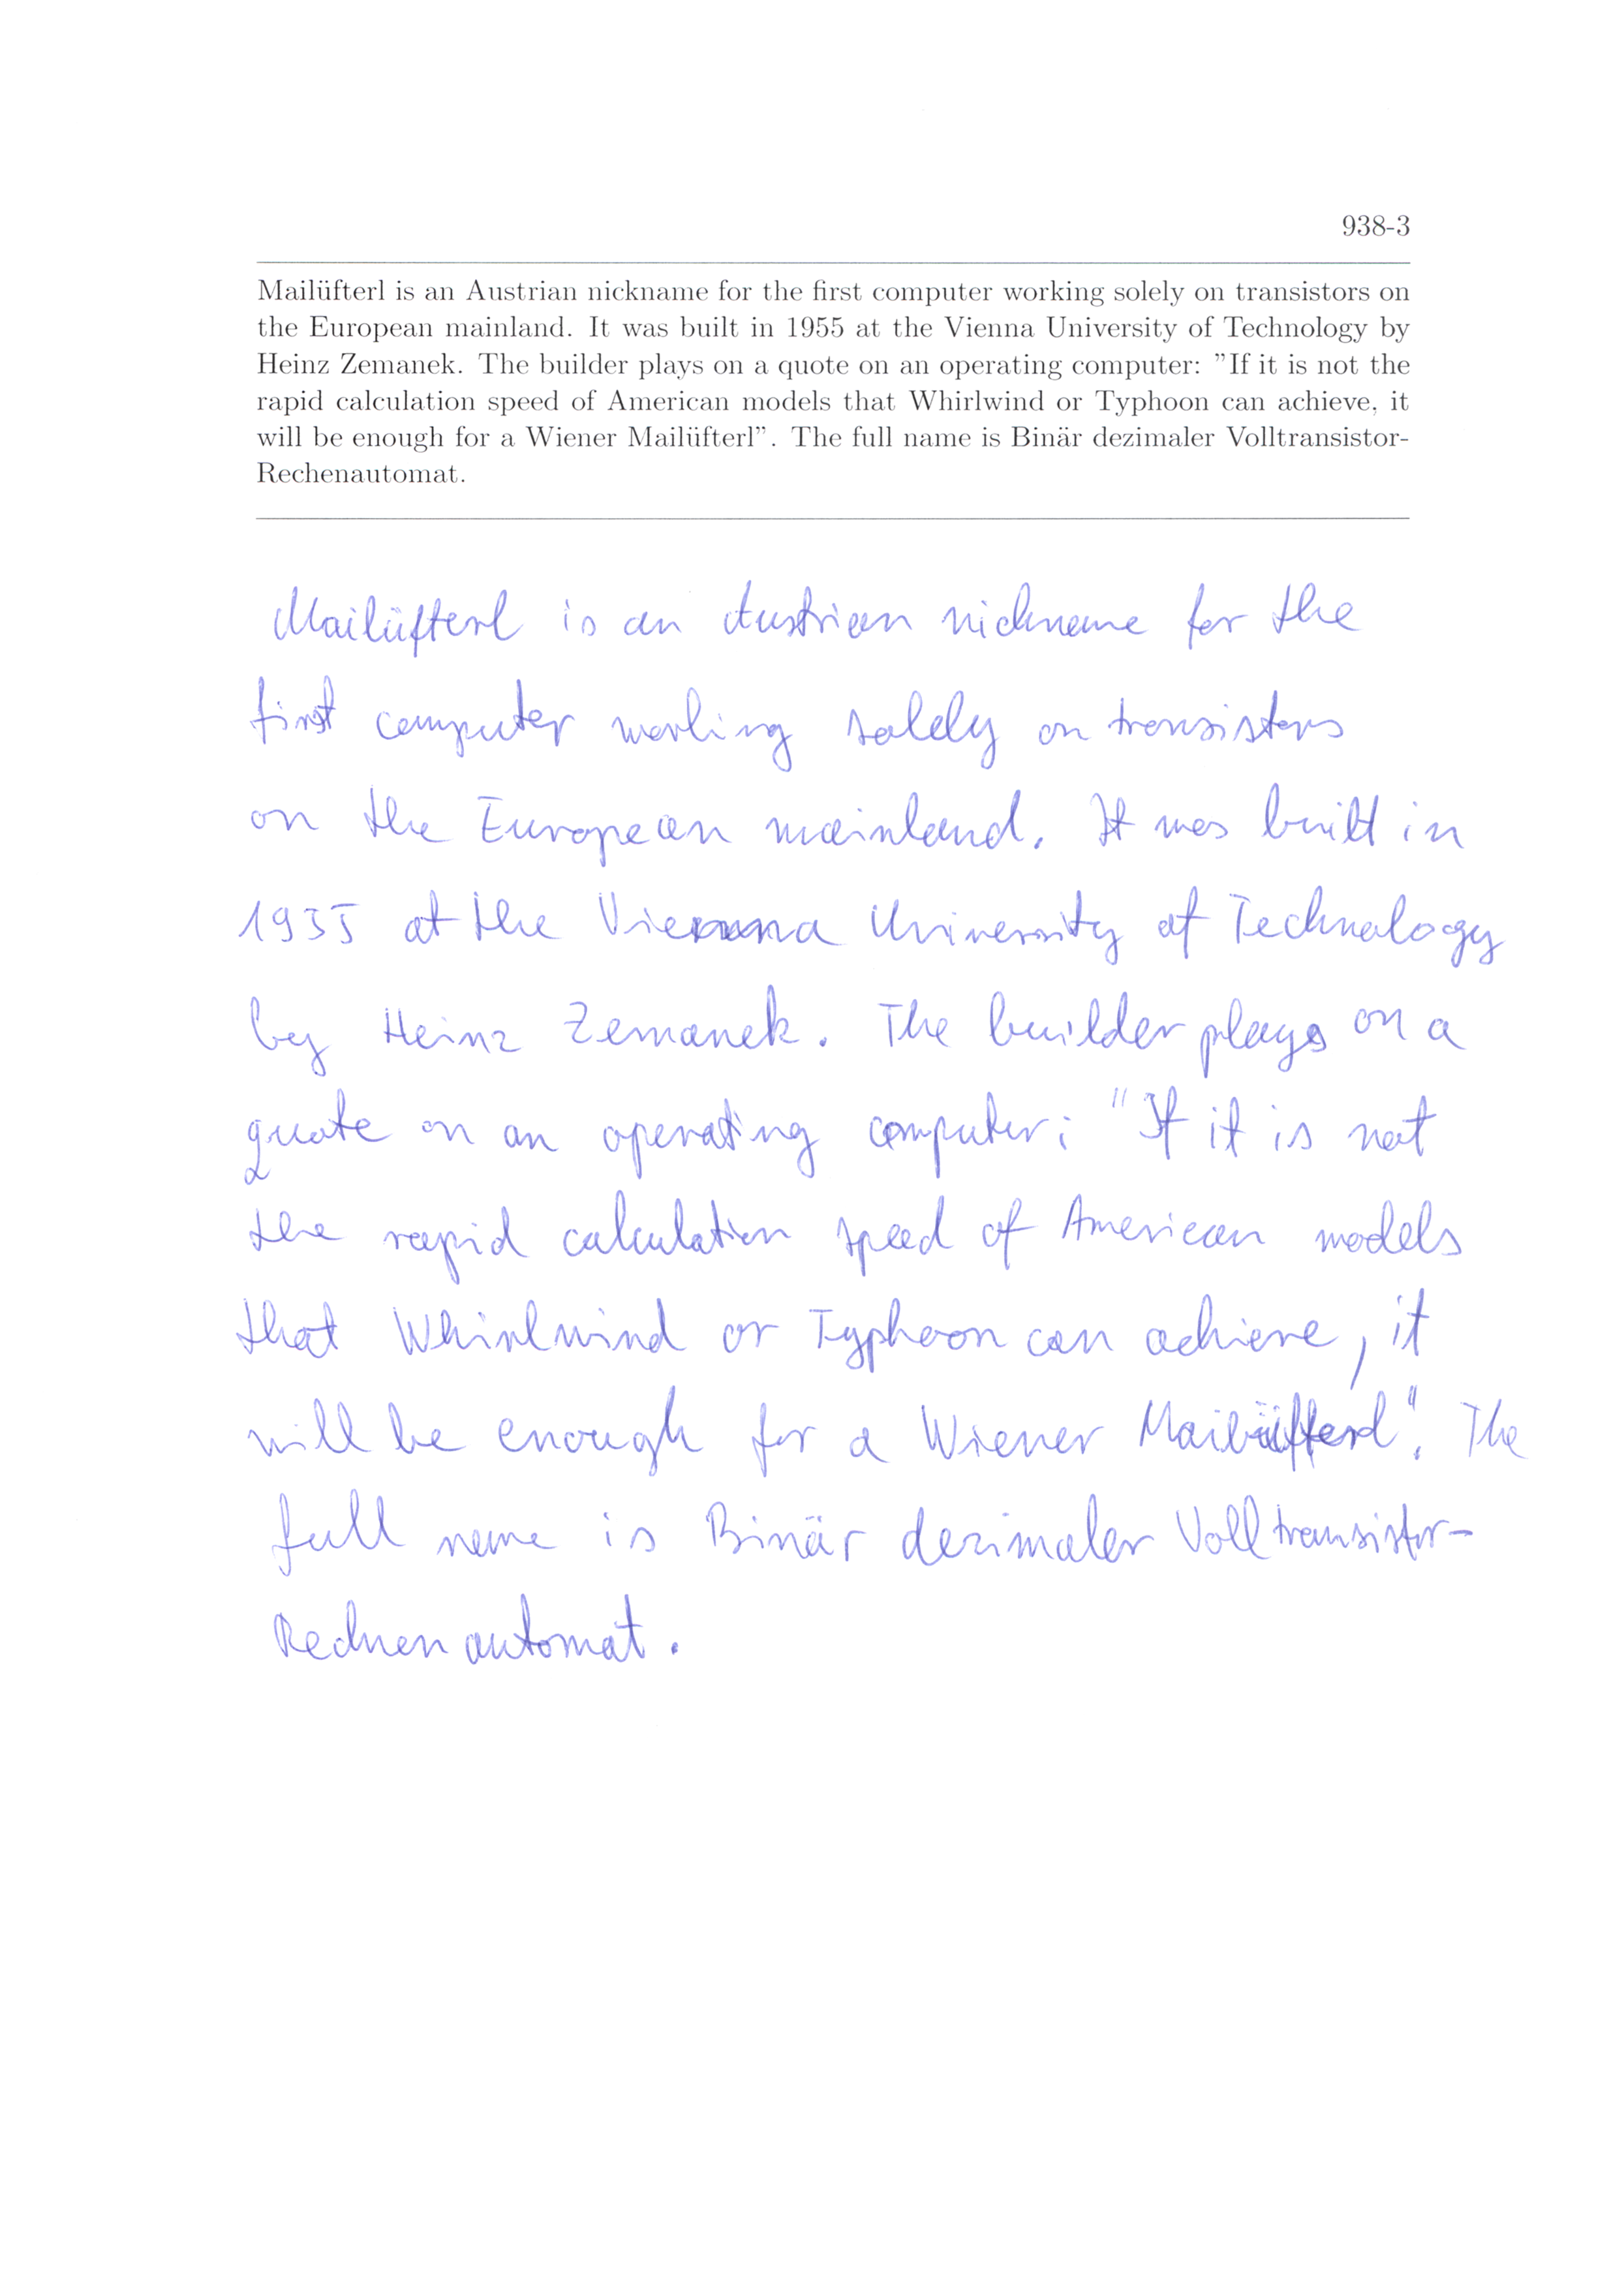 938-3
Mailüfterl is an Austrian nickname for the first computer working solely on transistors on
the European mainland. It was built in 1955 at the Vienna University of Technology by
Heinz Zemanek. The builder plays on a quote on an operating computer: "If it is not the
rapid calculation speed of American models that Whirlwind or Typhoon can achieve, it
will be enough for a Wiener Mailüfterl". The full name is Binär dezimaler Volltransistor-
Rechenautomat.
Mailüfterl is an Austrian nickname for the
first computer working solely on transistors
on the European mainland. It was built in
1955 at the Vienna University of Technology
by Heinz Zemanek. The builder plays on a
quote on an operating computer: "If it is not
the rapid calculation speed of American models
that Whirlwind or Typhoon can achieve, it
will be enough for a Wiener Mailüfterl". The
full name is Binär dezimaler Volltransistor-
Rechenautomat.